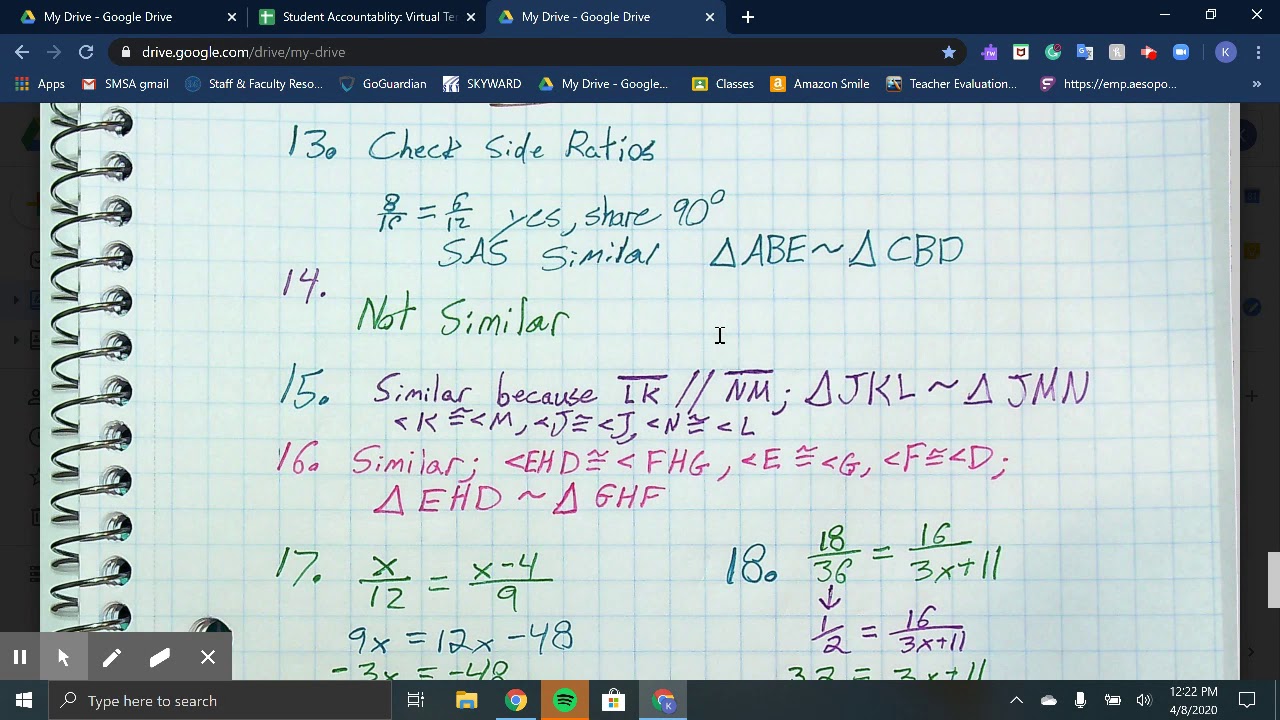 My Drive - Google Drive
Student Accountablity: Virtual Te
My Drive - Google Drive
drive.google.com/drive/my-drive
K
Apps
SMSA gmail
Staff & Faculty Reso...
GoGuardian
SKYWARD
My Drive - Google...
Classes
Amazon Smile
Teacher Evaluation...
https://emp.aesopo...
13. Check Side Ratios
8/16 = 6/12 yes, share 90°
SAS Similar △ABE ~ △CBD
14.
Not Similar
15. Similar because LK // NM; △JKL ~ △JMN
<K ≅ <M, <J ≅ <J, <N ≅ <L
16. Similar; <EHD ≅ <FHG, <E ≅ <G, <F ≅ <D;
△EHD ~ △GHF
17. x/12 = x-4/9
18. 18/36 = 16/3x+11
↓
9x = 12x - 48
1/2 = 16/3x+11
-3x = -48
32 = 3x+11
Type here to search
12:22 PM
4/8/2020